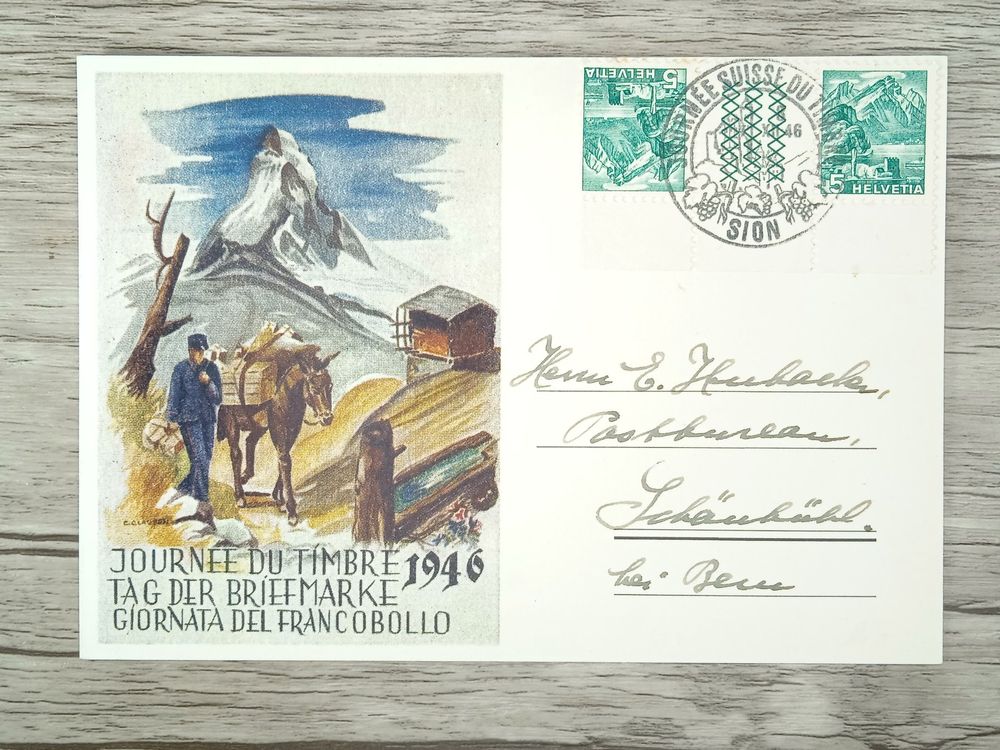 HELVETIA 5
JOURNÉE SUISSE DU
46
SION
5 HELVETIA
Herrn E.
Postbureau,
Schönbühl.
bei Bern
JOURNÉE DU TIMBRE 1946
TAG DER BRIEFMARKE
GIORNATA DEL FRANCOBOLLO